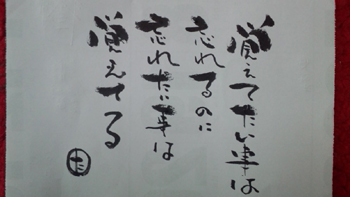 覚えてたい事は
忘れるのに
忘れたい事は
覚えてる